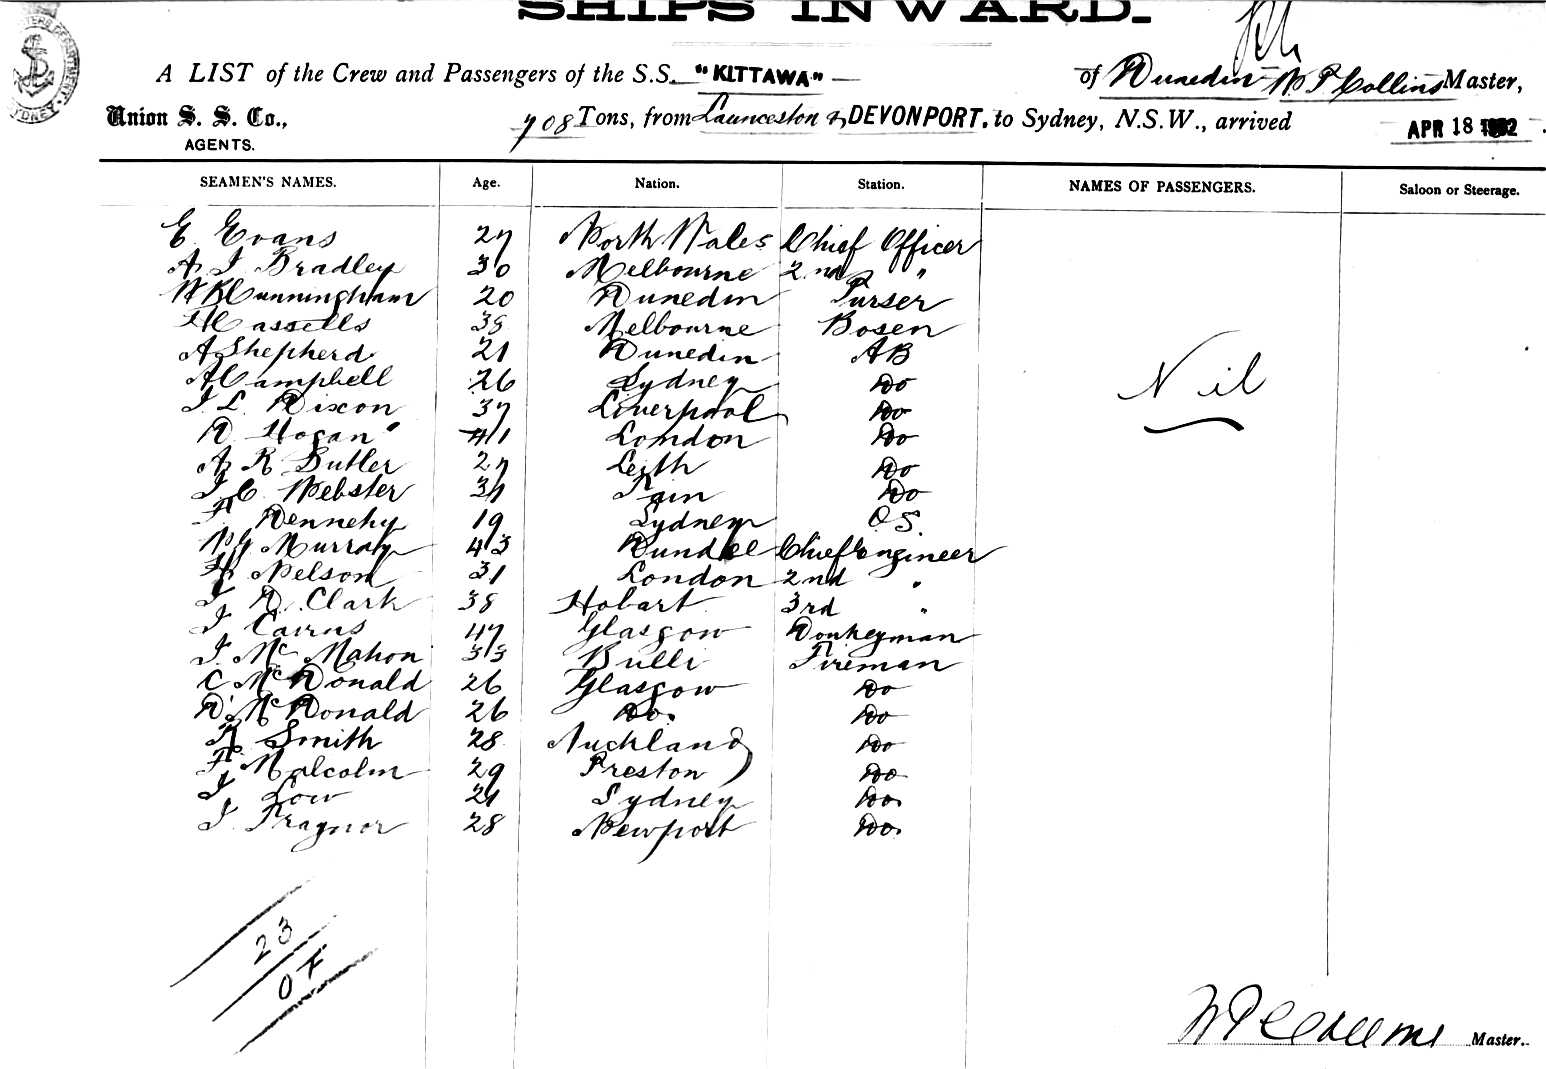 SHIPS INWARD.
A LIST of the Crew and Passengers of the S.S. "KITTAWA" of Dunedin W P Collins Master,
Union S. S. Co., 708 Tons, from Launceston & DEVONPORT. to Sydney, N.S.W., arrived APR 18
AGENTS.
SEAMEN'S NAMES. Age. Nation. Station. NAMES OF PASSENGERS. Saloon or Steerage.
E. Evans 27 North Wales Chief Officer
A. J. Bradley 30 Melbourne 2nd "
W K Cunningham 20 Dunedin Purser
Cassells 38 Melbourne Bosen
A Shepherd 21 Dunedin AB
A Campbell 26 Sydney Do
J. L. Dixon 37 Liverpool Do
D. Hogan 41 London Do
A R Butler 27 Leith Do
J. C. Webster 31 Do
Dennehy 19 Sydney O.S.
Murray 43 Dundee Chief Engineer
H. Nelson 31 London 2nd "
J D. Clark 38 Hobart 3rd "
J Cairns 47 Glasgow Donkeyman
J. McMahon 33 Bulli Fireman
C McDonald 26 Glasgow Do
D. McDonald 26 Do. Do
Smith 28 Auckland Do
F. Malcolm 29 Preston Do
J Low 21 Sydney Do.
J. Traynor 28 Newport Do.
Nil
23
W P Collins Master.